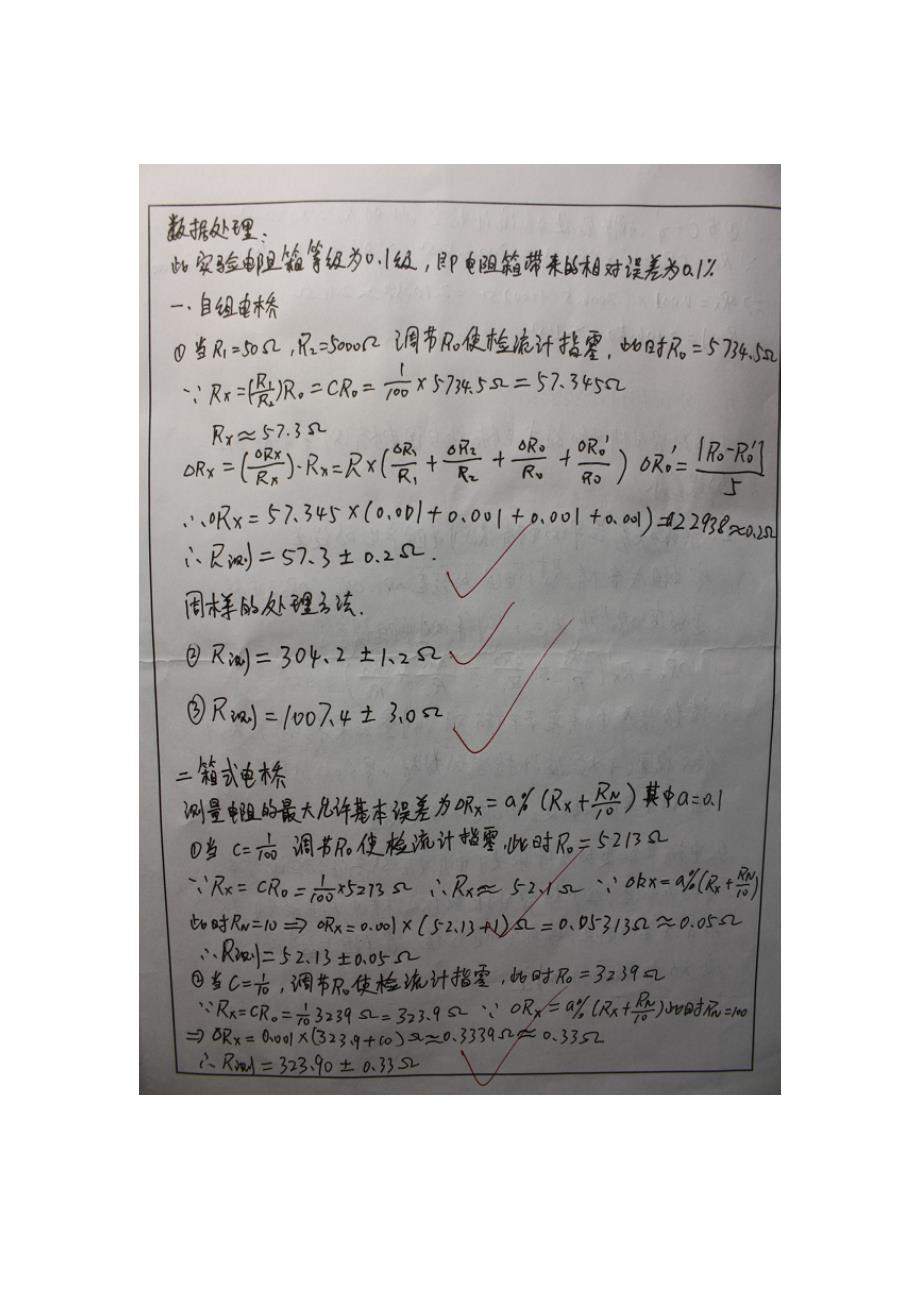 数据处理:
此实验电阻箱等级为0.1级,即电阻箱带来的相对误差为0.1%
一.自组电桥
① 当R₁=50Ω,R₂=5000Ω 调节R₀使检流计指零,此时R₀=5734.5Ω
∵ Rx=(R₁/R₂)R₀=CR₀=1/100×5734.5Ω=57.345Ω
Rx≈57.3Ω
ΔRx=(ΔRx/Rx)·Rx=Rx(ΔR₁/R₁+ΔR₂/R₂+ΔR₀/R₀+ΔR₀'/R₀) ΔR₀'=|R₀-R₀'|/5
∴ΔRx=57.345×(0.001+0.001+0.001+0.001)=0.22938≈0.2Ω
∴R测=57.3±0.2Ω.
同样的处理方法.
② R测=304.2±1.2Ω
③ R测=1007.4±3.0Ω
二 箱式电桥
测量电阻的最大允许基本误差为ΔRx=a%(Rx+RN/10)其中a=0.1
①当 C=1/100 调节R₀使检流计指零,此时R₀=5213Ω
∵Rx=CR₀=1/100×5213Ω ∴Rx≈52.1Ω ∵ΔRx=a%(Rx+RN/10)
此时RN=10⇒ΔRx=0.001×(52.13+1)Ω=0.05313Ω≈0.05Ω
∴R测=52.13±0.05Ω
②当C=1/10,调节R₀使检流计指零,此时R₀=3239Ω
∵Rx=CR₀=1/10 3239Ω=323.9Ω ∵ΔRx=a%(Rx+RN/10)此时RN=100
⇒ΔRx=0.001×(323.9+10)Ω≈0.3339Ω≈0.33Ω
∴R测=323.90±0.33Ω